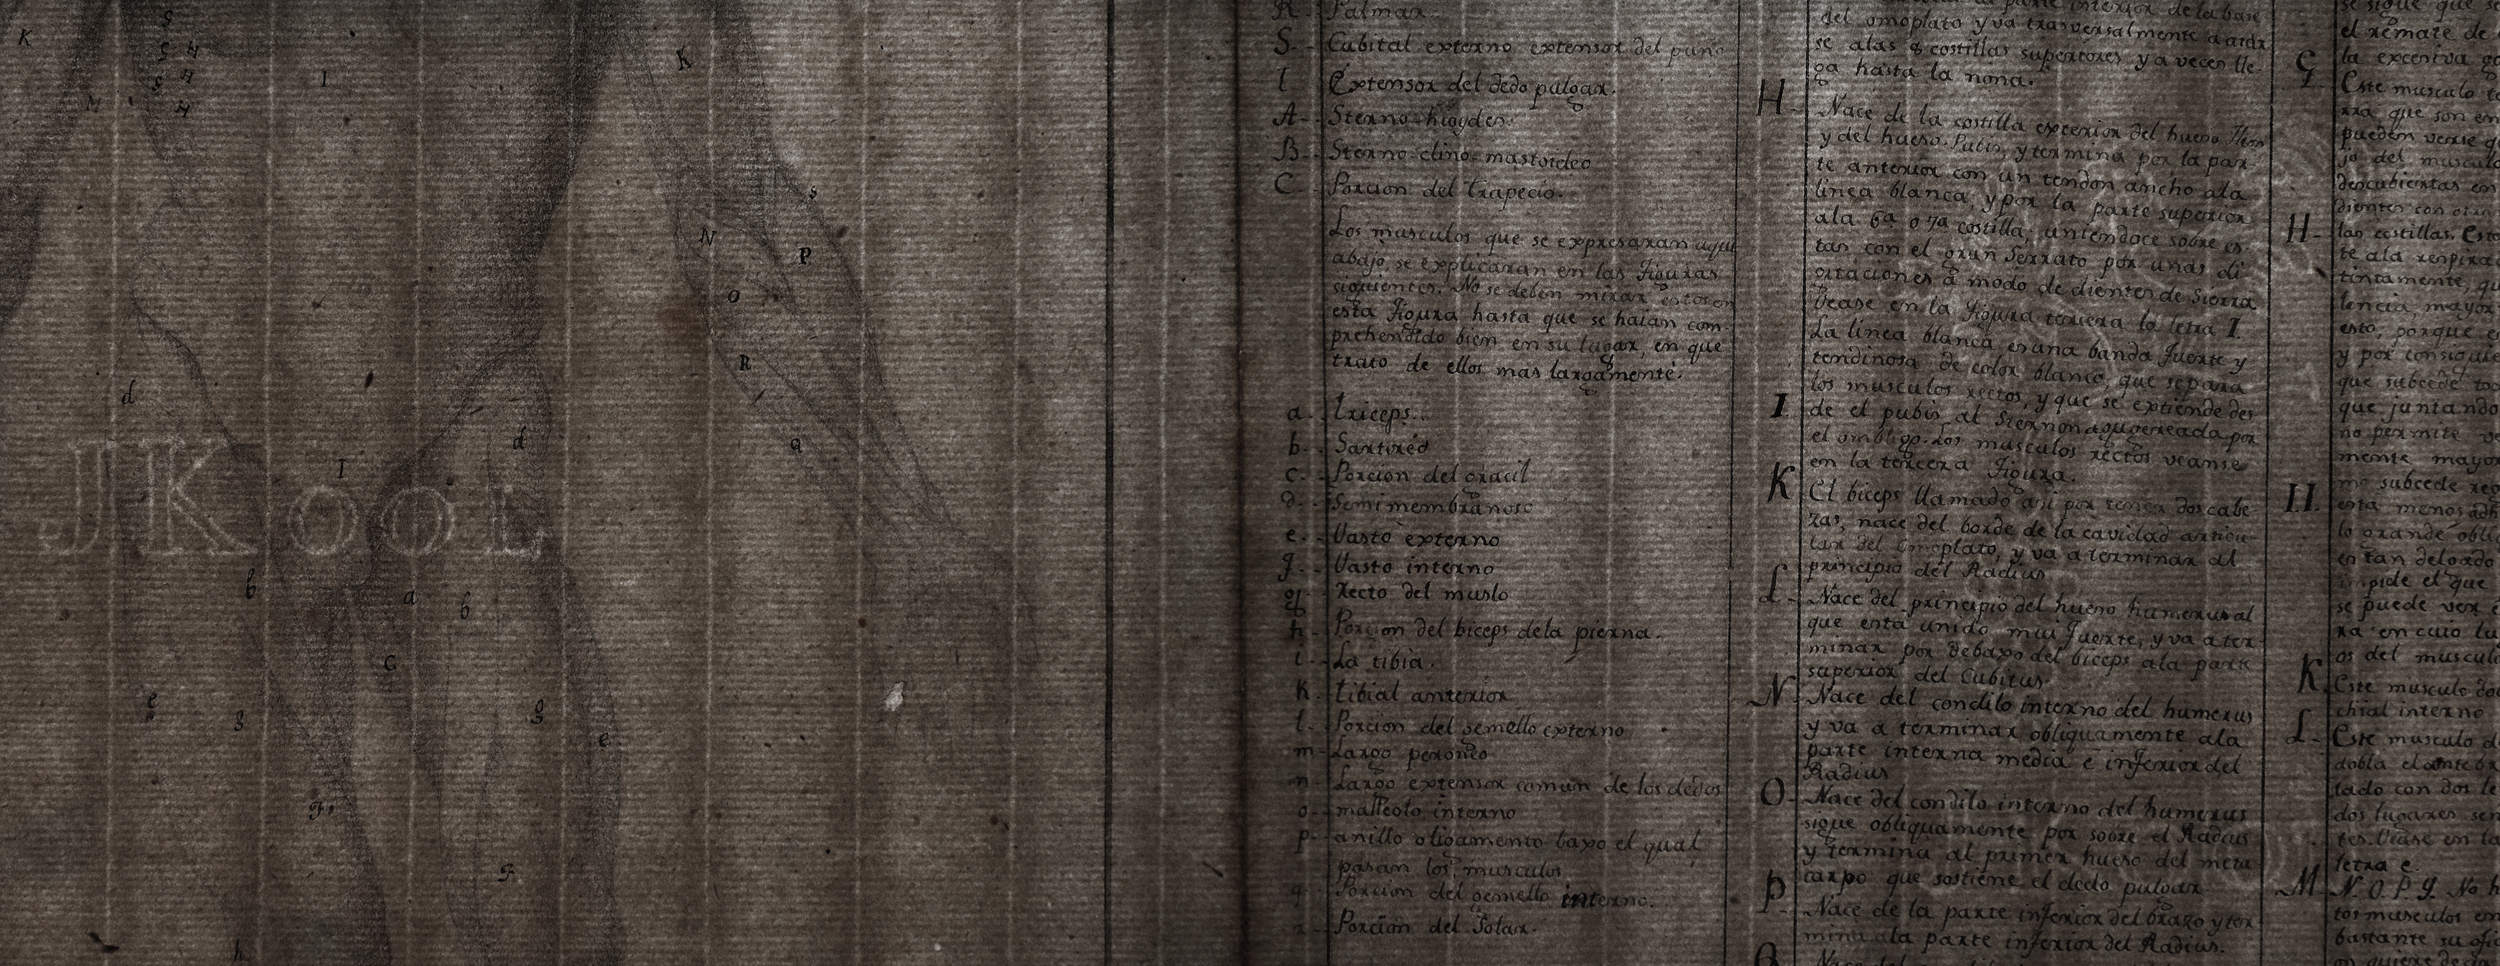 K
G
G H
G H
H
M
I
K
S
N
P
O
R
d
q
d
I
J K o o L
b
a
b
C
e
g
g
e
F
F
h
R. Palmar.
S. Cubital externo extensor del puño
l Extensor del dedo pulgar.
A- Sterno-hioydes.
B. Sterno-clino-mastoideo
C Porcion del trapecio.
Los musculos que se expresaran aqui
abajo, se explicaran en las figuras
siguientes. No se deben mirar estos en
esta figura hasta que se haian com-
prehendido bien en su lugar, en que
trato de ellos mas largamente.
a. triceps.
b. Sartired
c. Porcion del gracil
d. Semimembranoso
e. Vasto externo
f. Vasto interno
g. Recto del muslo
h. Porcion del biceps dela pierna.
i. La tibia.
K. tibial anterior
l. Porcion del gemello externo
m- Largo peroneo
n- Largo extensor comun de los dedos
o- malleolo interno
p- anillo o ligamento baxo el qual
pasan los musculos
q Porcion del gemello interno.
Porcion del Solar.
parte interior de la base
del omoplato y va trasversalmente a
se alas 8 costillas superiores y a veces lle-
ga hasta la nona.
H- Nace de la costilla exterior del hueso
y del hueso Pubis, y termina por la par-
te anterior con un tendon ancho ala
linea blanca, y por la parte superior
ala 6a o 7a costilla; uniendoce sobre es-
tas con el gran Serrato por unas di-
gitaciones a modo de dientes de Sierra
Vease en la figura tercera la letra I.
La linea blanca es una banda fuerte y
tendinosa de color blanco, que separa
los musculos rectos, y que se extiende des
I de el pubis al Sternon agugereada por
el ombligo. Los musculos rectos veanse
en la tercera figura.
K El biceps llamado asi por tener dos cabe-
zas, nace del borde de la cavidad articu-
lar del omoplato, y va a terminar al
principio del Radius
L- Nace del principio del hueso humerus al
que esta unido mui fuerte, y va a ter-
minar por debaxo del biceps ala parte
superior del Cubitus.
N Nace del condilo interno del humerus
y va a terminar obliquamente ala
parte interna media e inferior del
Radius
O- Nace del condilo interno del humerus
sigue obliquamente por sobre el Radius
y termina al primer hueso del meta-
carpo que sostiene el dedo pulgar
P- Nace de la parte inferior del brazo y ter
mina ala parte inferior del Radius.
se sigue que se
el remate de
la excesiva
G Este musculo
que son en
pueden verse
jo del musculo
descubiertas en
dientes con otra
H- las costillas. Esto
te ala respira
tintamente, qu
lencia, mayor
esto, porque e
y por consiguie
que subcede to
que juntando
no permite ve
mente mayor
subcede
I.I. esta menos
lo grande obli
en tan delgado
impide el que
se puede ver
ra en cuio lu
os del musculo
K Este musculo do
chial interno
L- Este musculo d
dobla el antebr
lado con dos le
dos lugares sen
tes. Vease en la
letra e.
M. N. O. P. Q. No h
tos musculos en
bastante su ofi